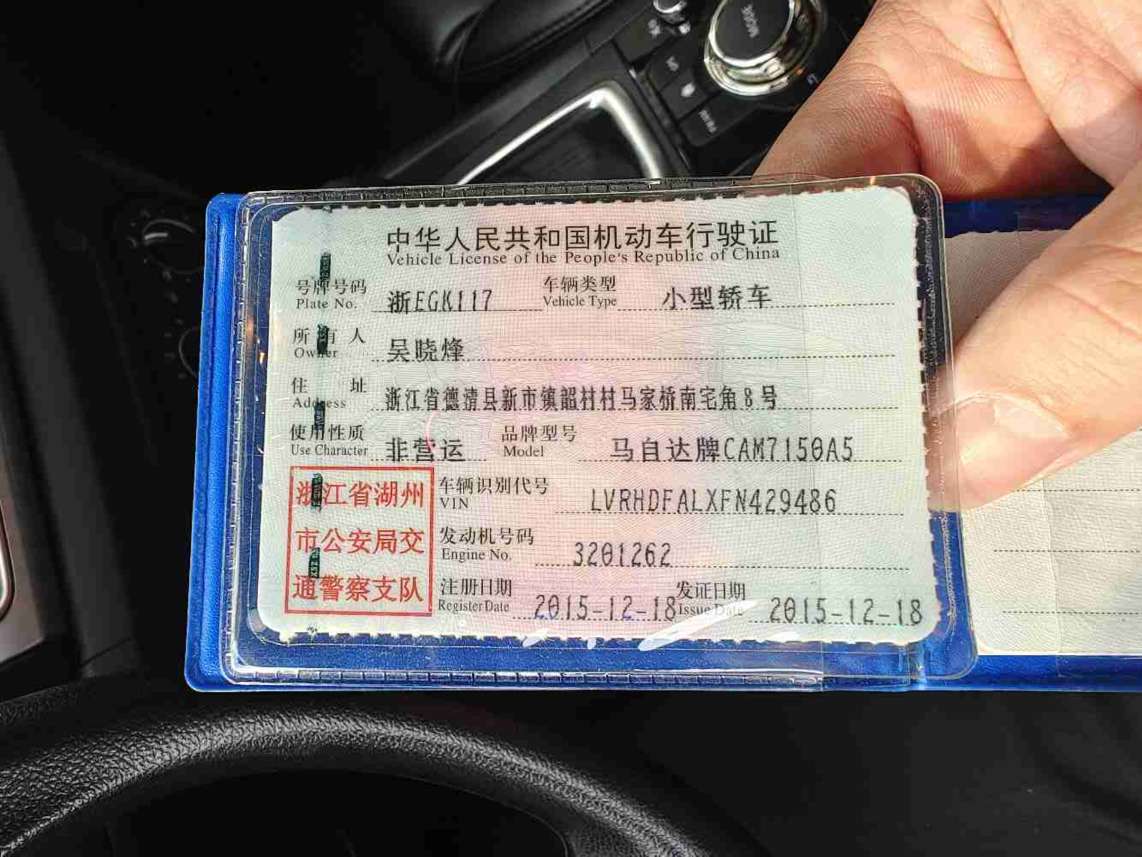 MODE
中华人民共和国机动车行驶证
Vehicle License of the People's Republic of China
号牌号码 浙EGK117 车辆类型 小型轿车
Plate No. Vehicle Type
所有人 吴晓烽
Owner
住址 浙江省德清县新市镇韶村村马家桥南宅角8号
Address
使用性质 非营运 品牌型号 马自达牌CAM7150A5
Use Character Model
浙江省湖州
市公安局交
通警察支队
车辆识别代号 LVRHDFALXFN429486
VIN
发动机号码 3201262
Engine No.
注册日期 2015-12-18 发证日期 2015-12-18
Register Date Issue Date